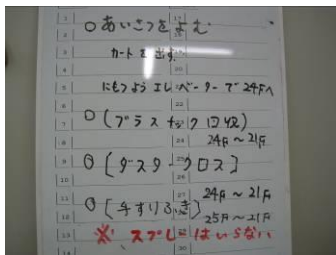 ○あいさつをよむ
カートを出す。
にもつようエレベーターで24Fへ
○(プラスチック回収)
24F～21F
○[ダスタークロス]
24F～21F
○[手すりふき]
25F～21F
※スプレーはいらない